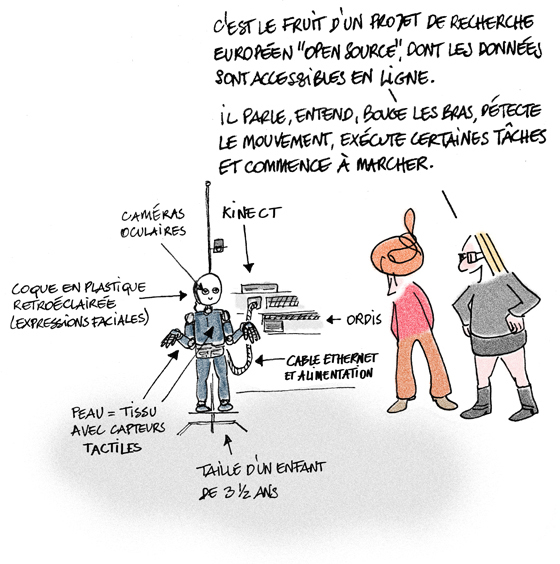 C'EST LE FRUIT D'UN PROJET DE RECHERCHE
EUROPÉEN "OPEN SOURCE", DONT LES DONNÉES
SONT ACCESSIBLES EN LIGNE.
IL PARLE, ENTEND, BOUGE LES BRAS, DÉTECTE
LE MOUVEMENT, EXÉCUTE CERTAINES TÂCHES
ET COMMENCE À MARCHER.
CAMÉRAS
OCULAIRES
KINECT
COQUE EN PLASTIQUE
RETROÉCLAIRÉE
(EXPRESSIONS FACIALES)
ORDIS
CABLE ETHERNET
ET ALIMENTATION
PEAU = TISSU
AVEC CAPTEURS
TACTILES
TAILLE D'UN ENFANT
DE 3 ½ ANS